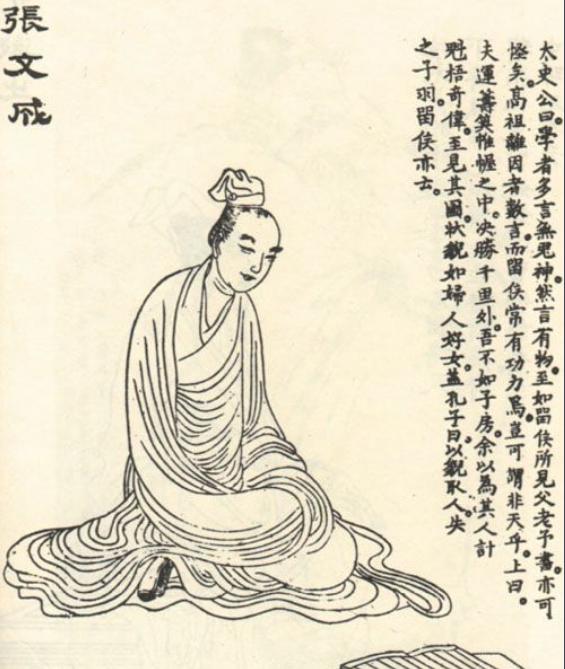 太史公曰。學者多言無鬼神。然言有物。至如留侯所見父老予書。亦可
怪矣。高祖離因者數言。而留侯常有功力焉。豈可謂非天乎。上曰。
夫運籌筴帷幄之中。决勝千里外。吾不如子房。余以為其人計
魁梧奇偉。至見其圖。狀貌如婦人好女。蓋孔子曰以貌取人。失
之子羽。留侯亦云。
張文成